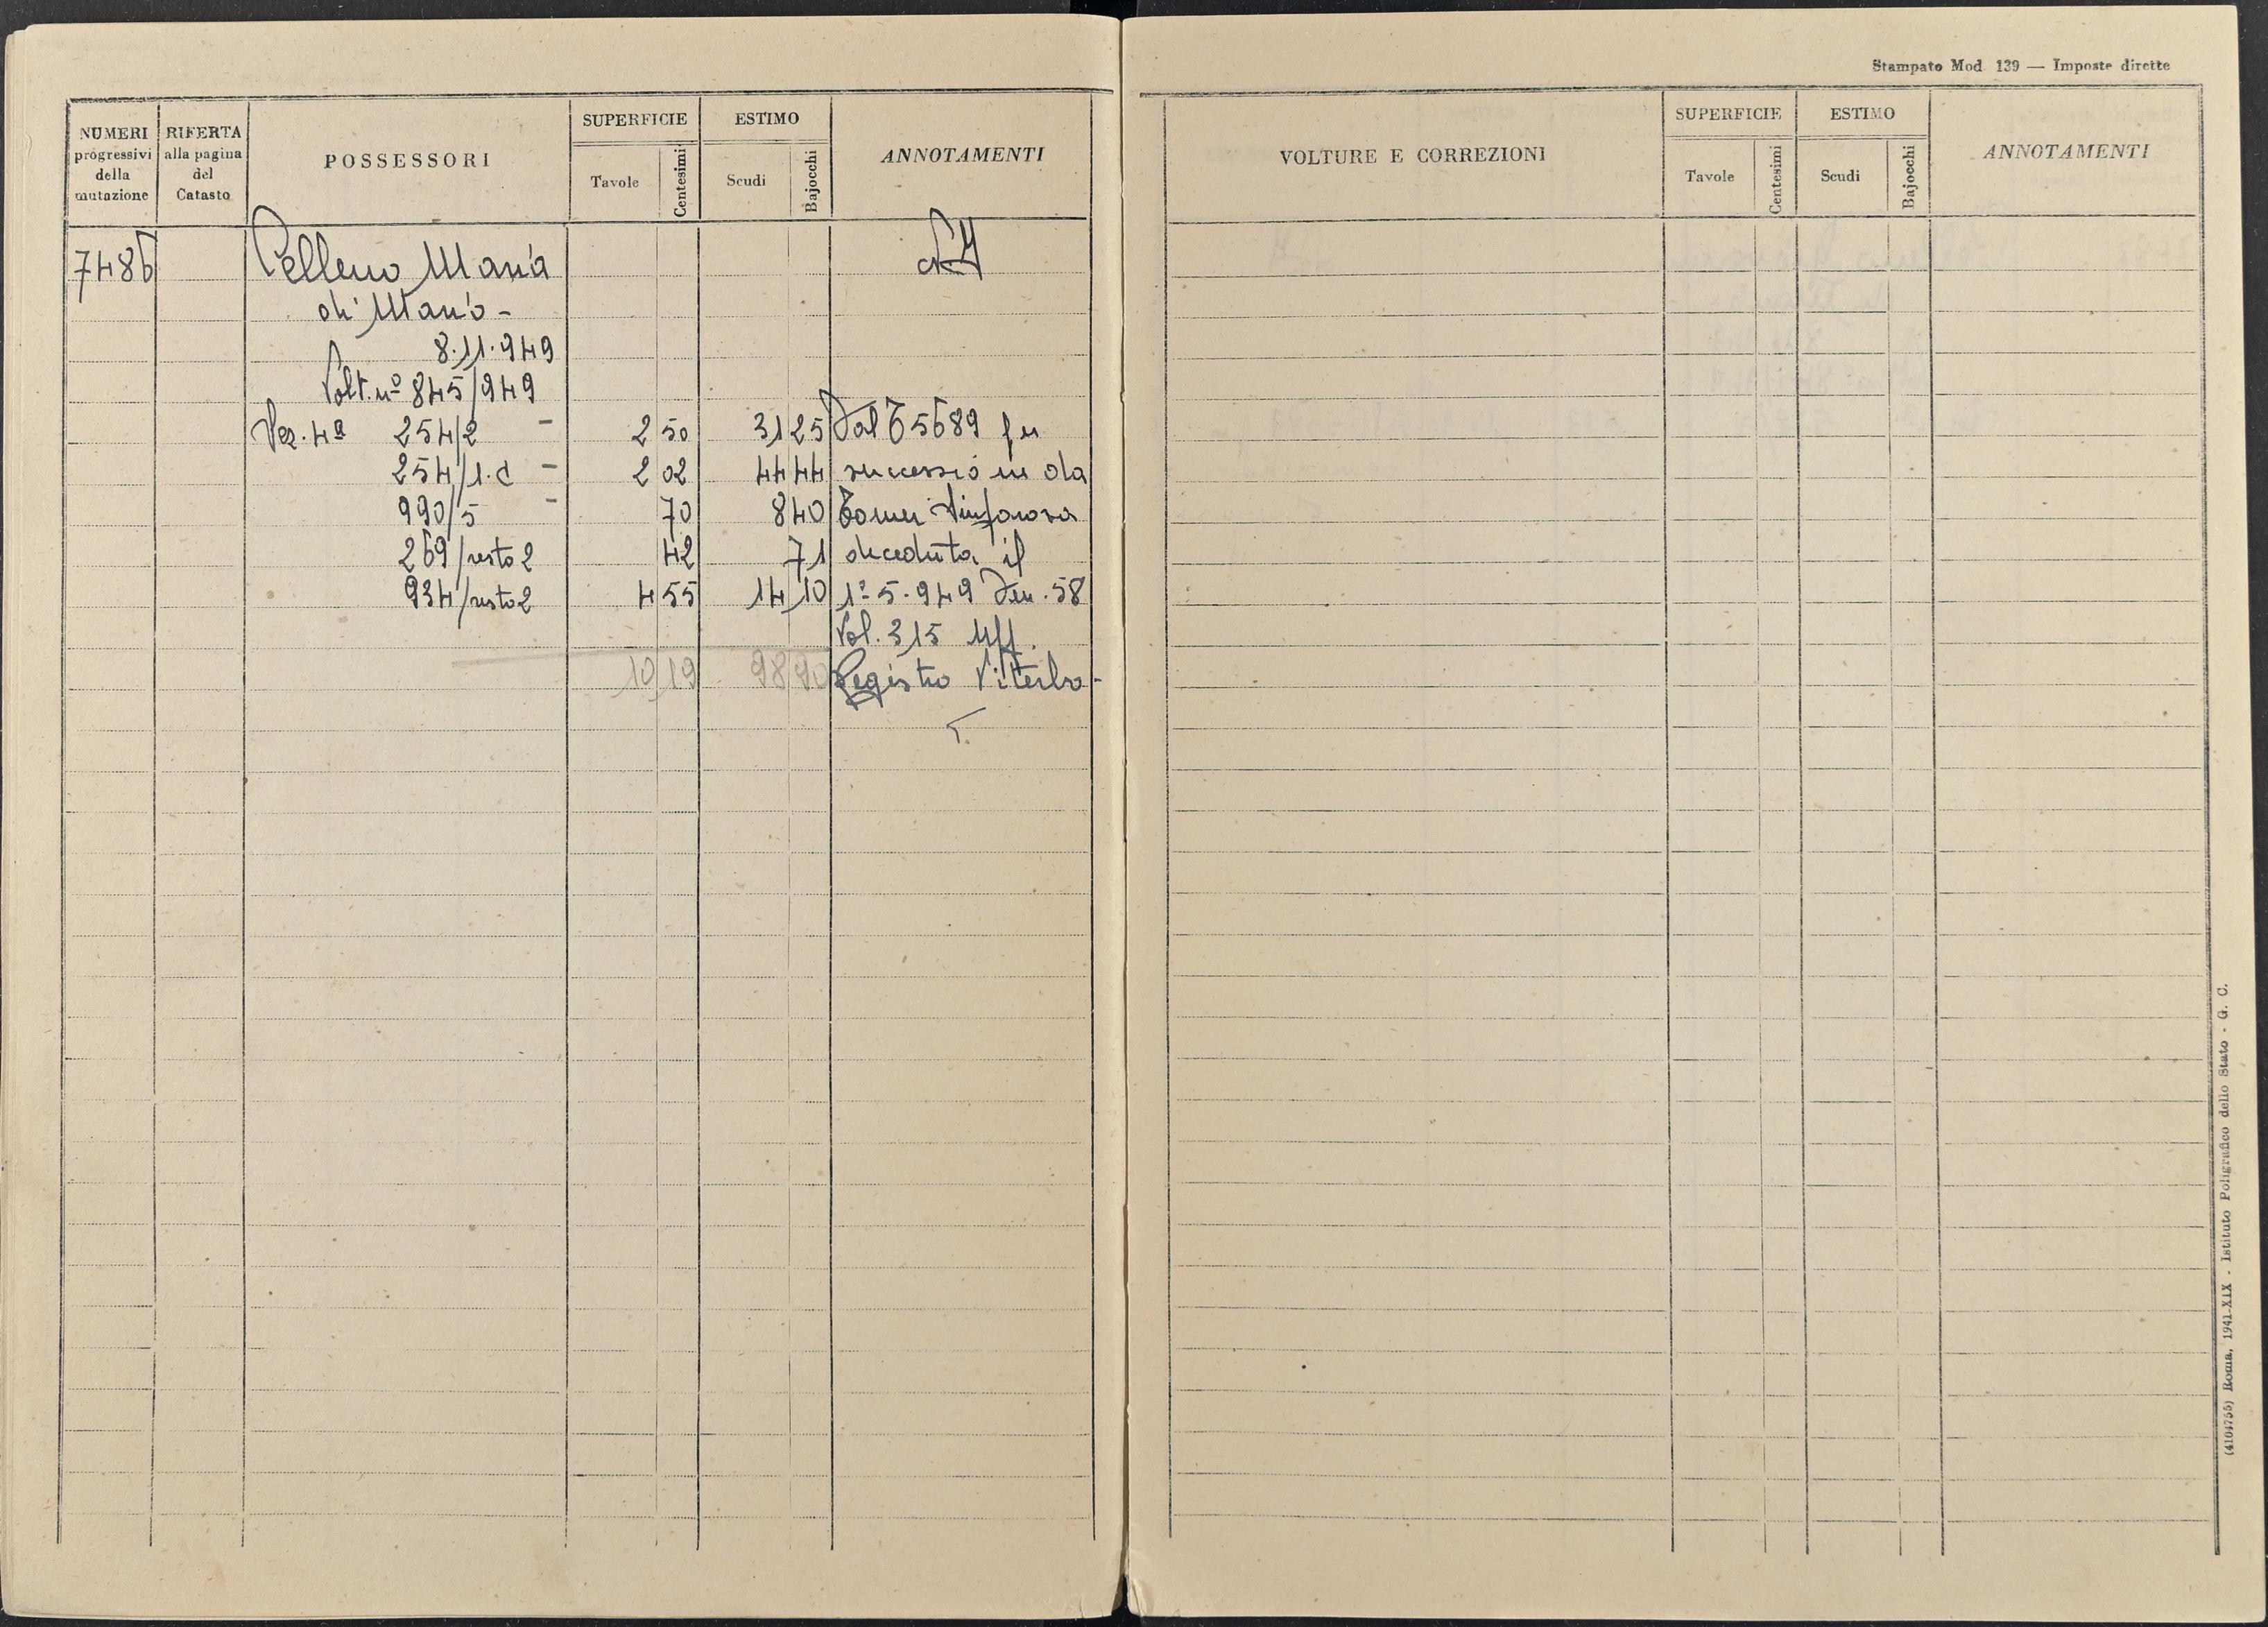 Stampato Mod. 139 — Imposte dirette
NUMERI progressivi della mutazione
RIFERTA alla pagina del Catasto
POSSESSORI
SUPERFICIE
Tavole
Centesimi
ESTIMO
Scudi
Bajocchi
ANNOTAMENTI
7486
Celleno Maria
di Mario -
8.11.949
Volt. nº 845/949
Vez. 4ª 254/2 - 2 50 31 25 Dal 65689 per
254/1.c - 2 02 44 44 successione da
990/5 - 70 8 40 Sinforosa
269/resto 2 42 71 deceduta il
934/resto 2 4 55 14 10 1º 5.949 Den. 58
Vol. 315 Uff.
10 19 98 90 Registro Viterbo -
VOLTURE E CORREZIONI
SUPERFICIE
Tavole
Centesimi
ESTIMO
Scudi
Bajocchi
ANNOTAMENTI
(4104755) Roma, 1941-XIX - Istituto Poligrafico dello Stato - G. C.